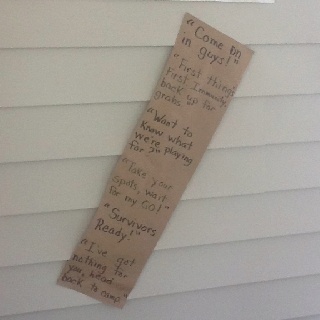 "Come on
in guys!"
"First things
first Immunity
back up for
grabs."
"Want to
know what
we're playing
for?"
"Take your
spots, wait
for my GO!"
"Survivors
Ready!"
"I've got
nothing for
you, head
back to camp"